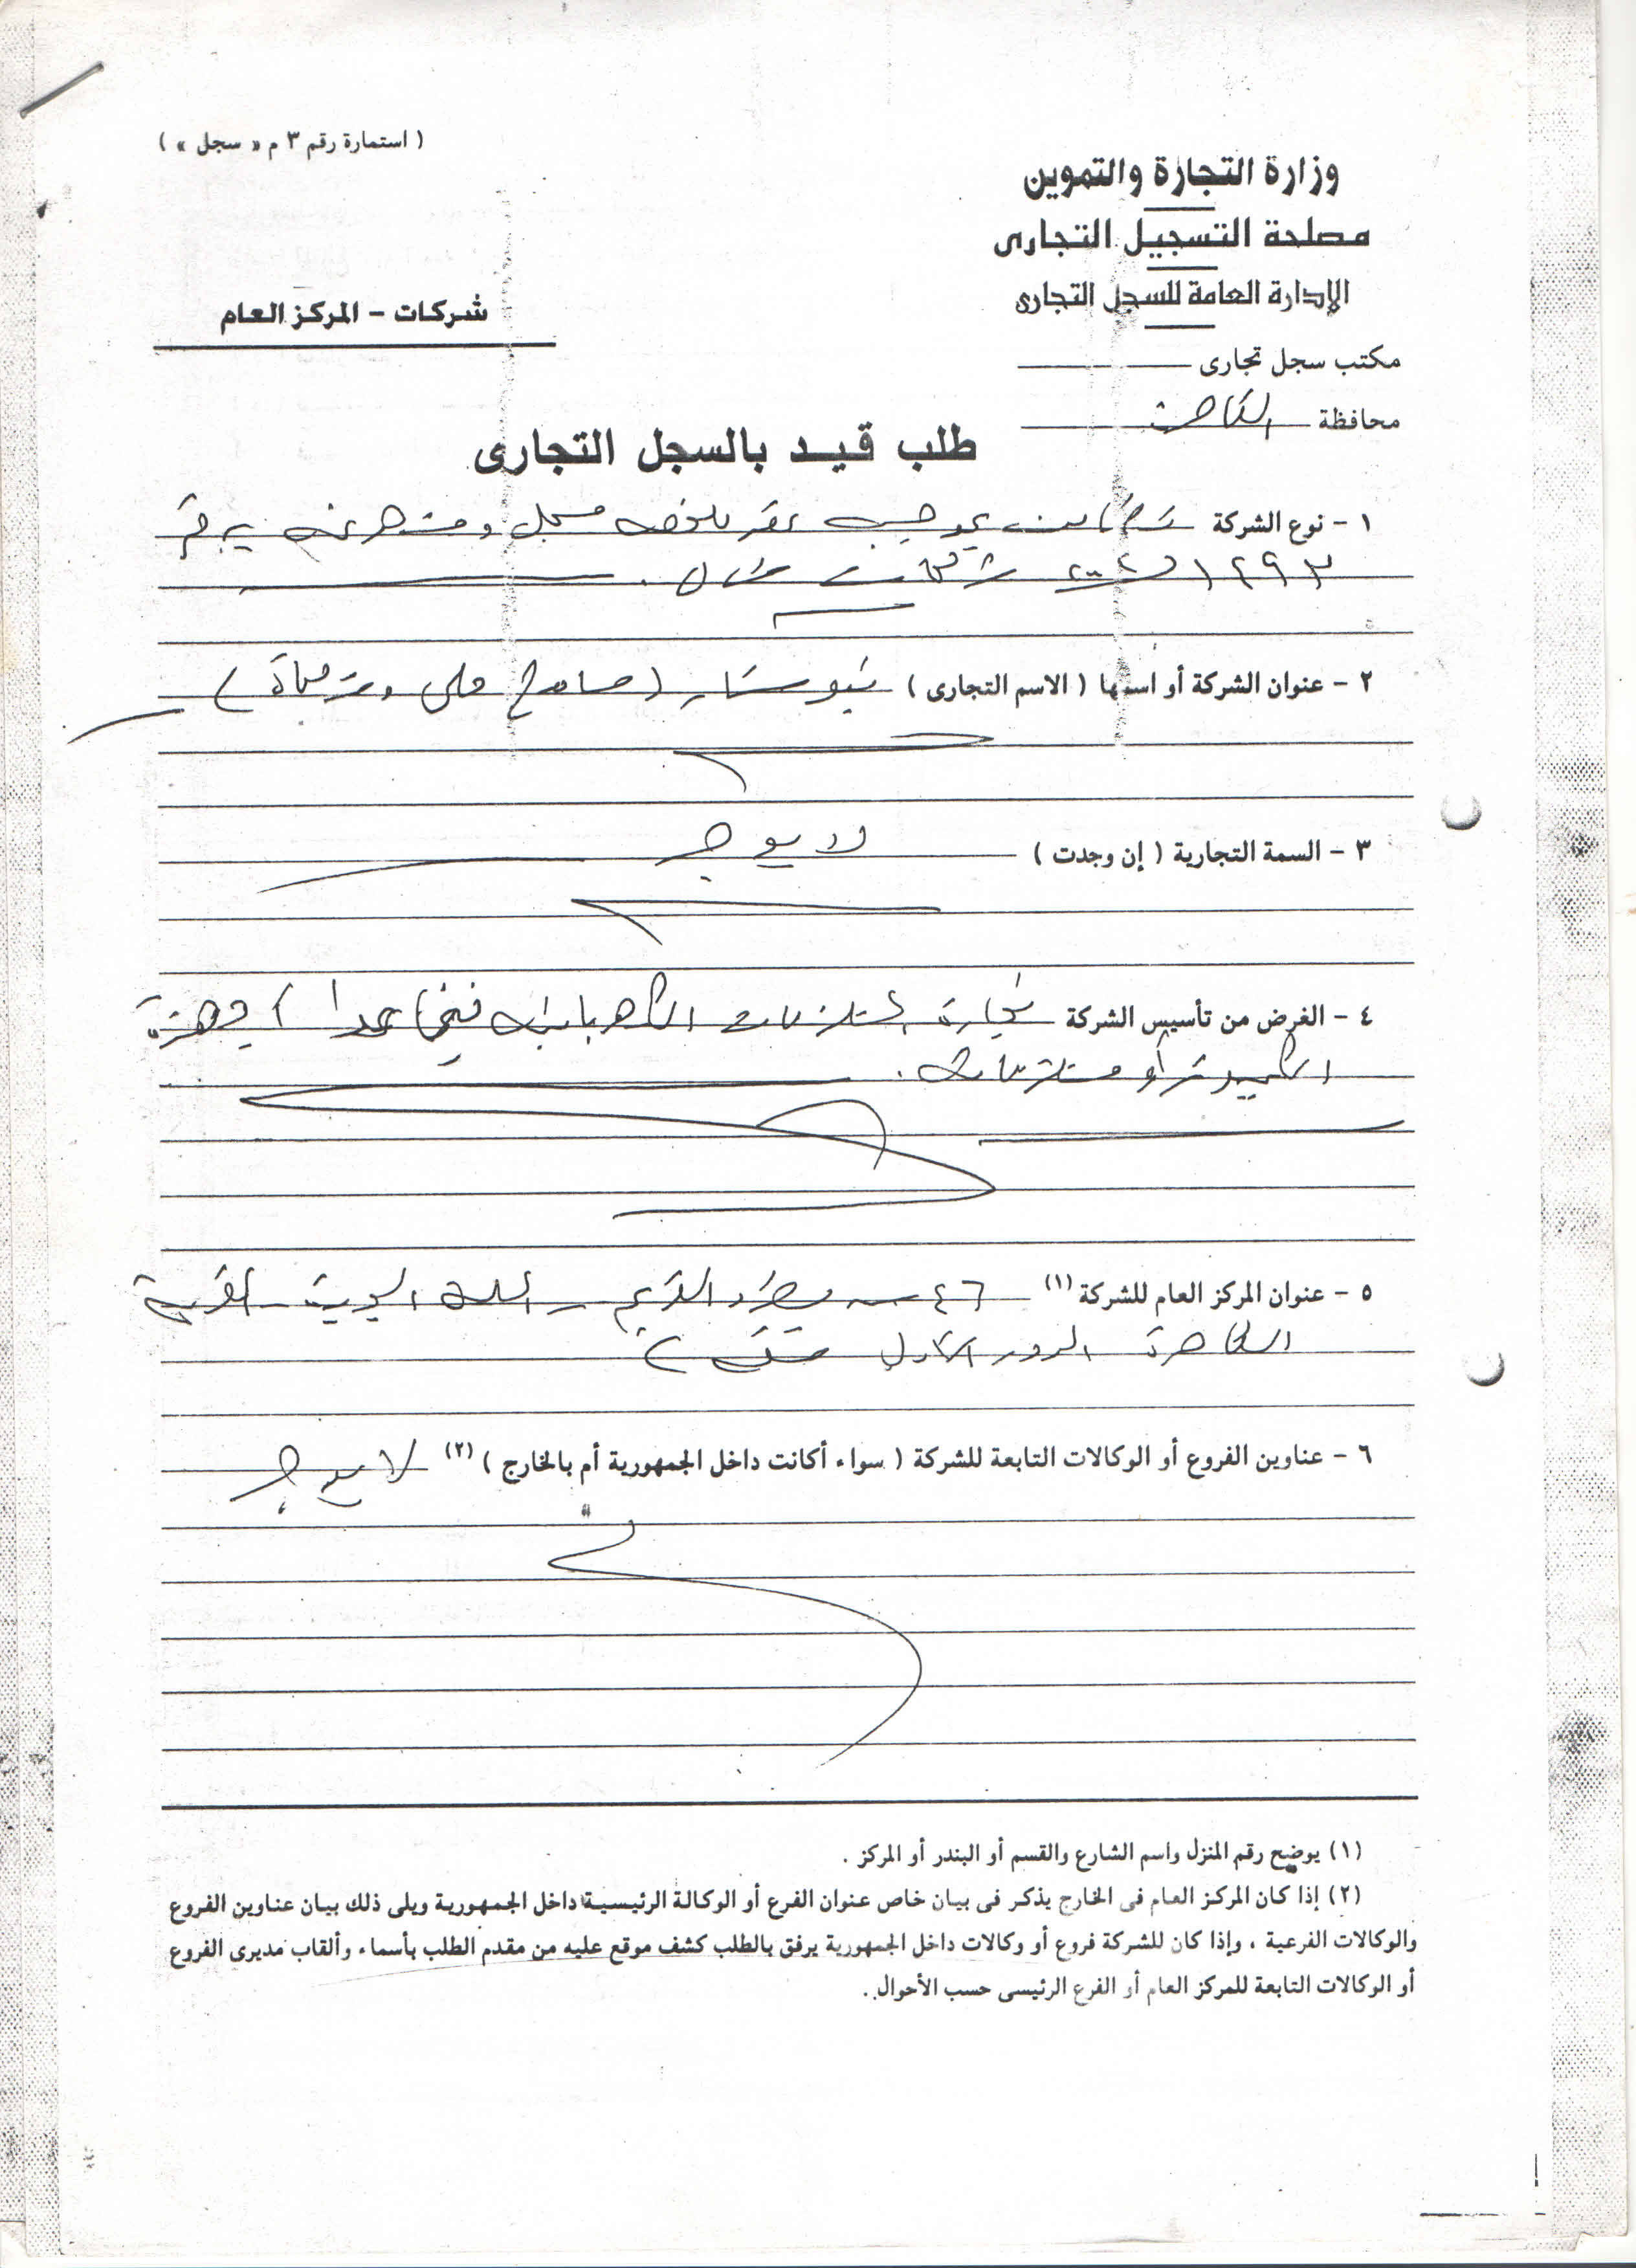 ( استمارة رقم ٣ م « سجل » )
وزارة التجارة والتموين
مصلحة التسجيل التجارى
الإدارة العامة للسجل التجارى
شركات - المركز العام
مكتب سجل تجارى
محافظة القاهرة
طلب قيد بالسجل التجارى
١ - نوع الشركة تضامن بموجب عقد ملخصه مسجل ومشهر عنه برقم
١٢٩٣ لسنة ٢٠٠٢ شركات شمال
٢ - عنوان الشركة أو اسمها ( الاسم التجارى ) نيو ستار ( سامح على وشركاه )
٣ - السمة التجارية ( إن وجدت ) لا يوجد
٤ - الغرض من تأسيس الشركة تجارة المستلزمات الكهربائية فيما عدا أجهزة
الكمبيوتر أو مستلزماته .
٥ - عنوان المركز العام للشركة (١) ٤٦ ش القديم
القاهرة الدور الأول شقة
٦ - عناوين الفروع أو الوكالات التابعة للشركة ( سواء أكانت داخل الجمهورية أم بالخارج ) (٢) لا يوجد
(١) يوضح رقم المنزل واسم الشارع والقسم أو البندر أو المركز .
(٢) إذا كان المركز العام فى الخارج يذكر فى بيان خاص عنوان الفرع أو الوكالة الرئيسية داخل الجمهورية ويلى ذلك بيان عناوين الفروع
والوكالات الفرعية ، وإذا كان للشركة فروع أو وكالات داخل الجمهورية يرفق بالطلب كشف موقع عليه من مقدم الطلب بأسماء وألقاب مديرى الفروع
أو الوكالات التابعة للمركز العام أو الفرع الرئيسى حسب الأحوال .